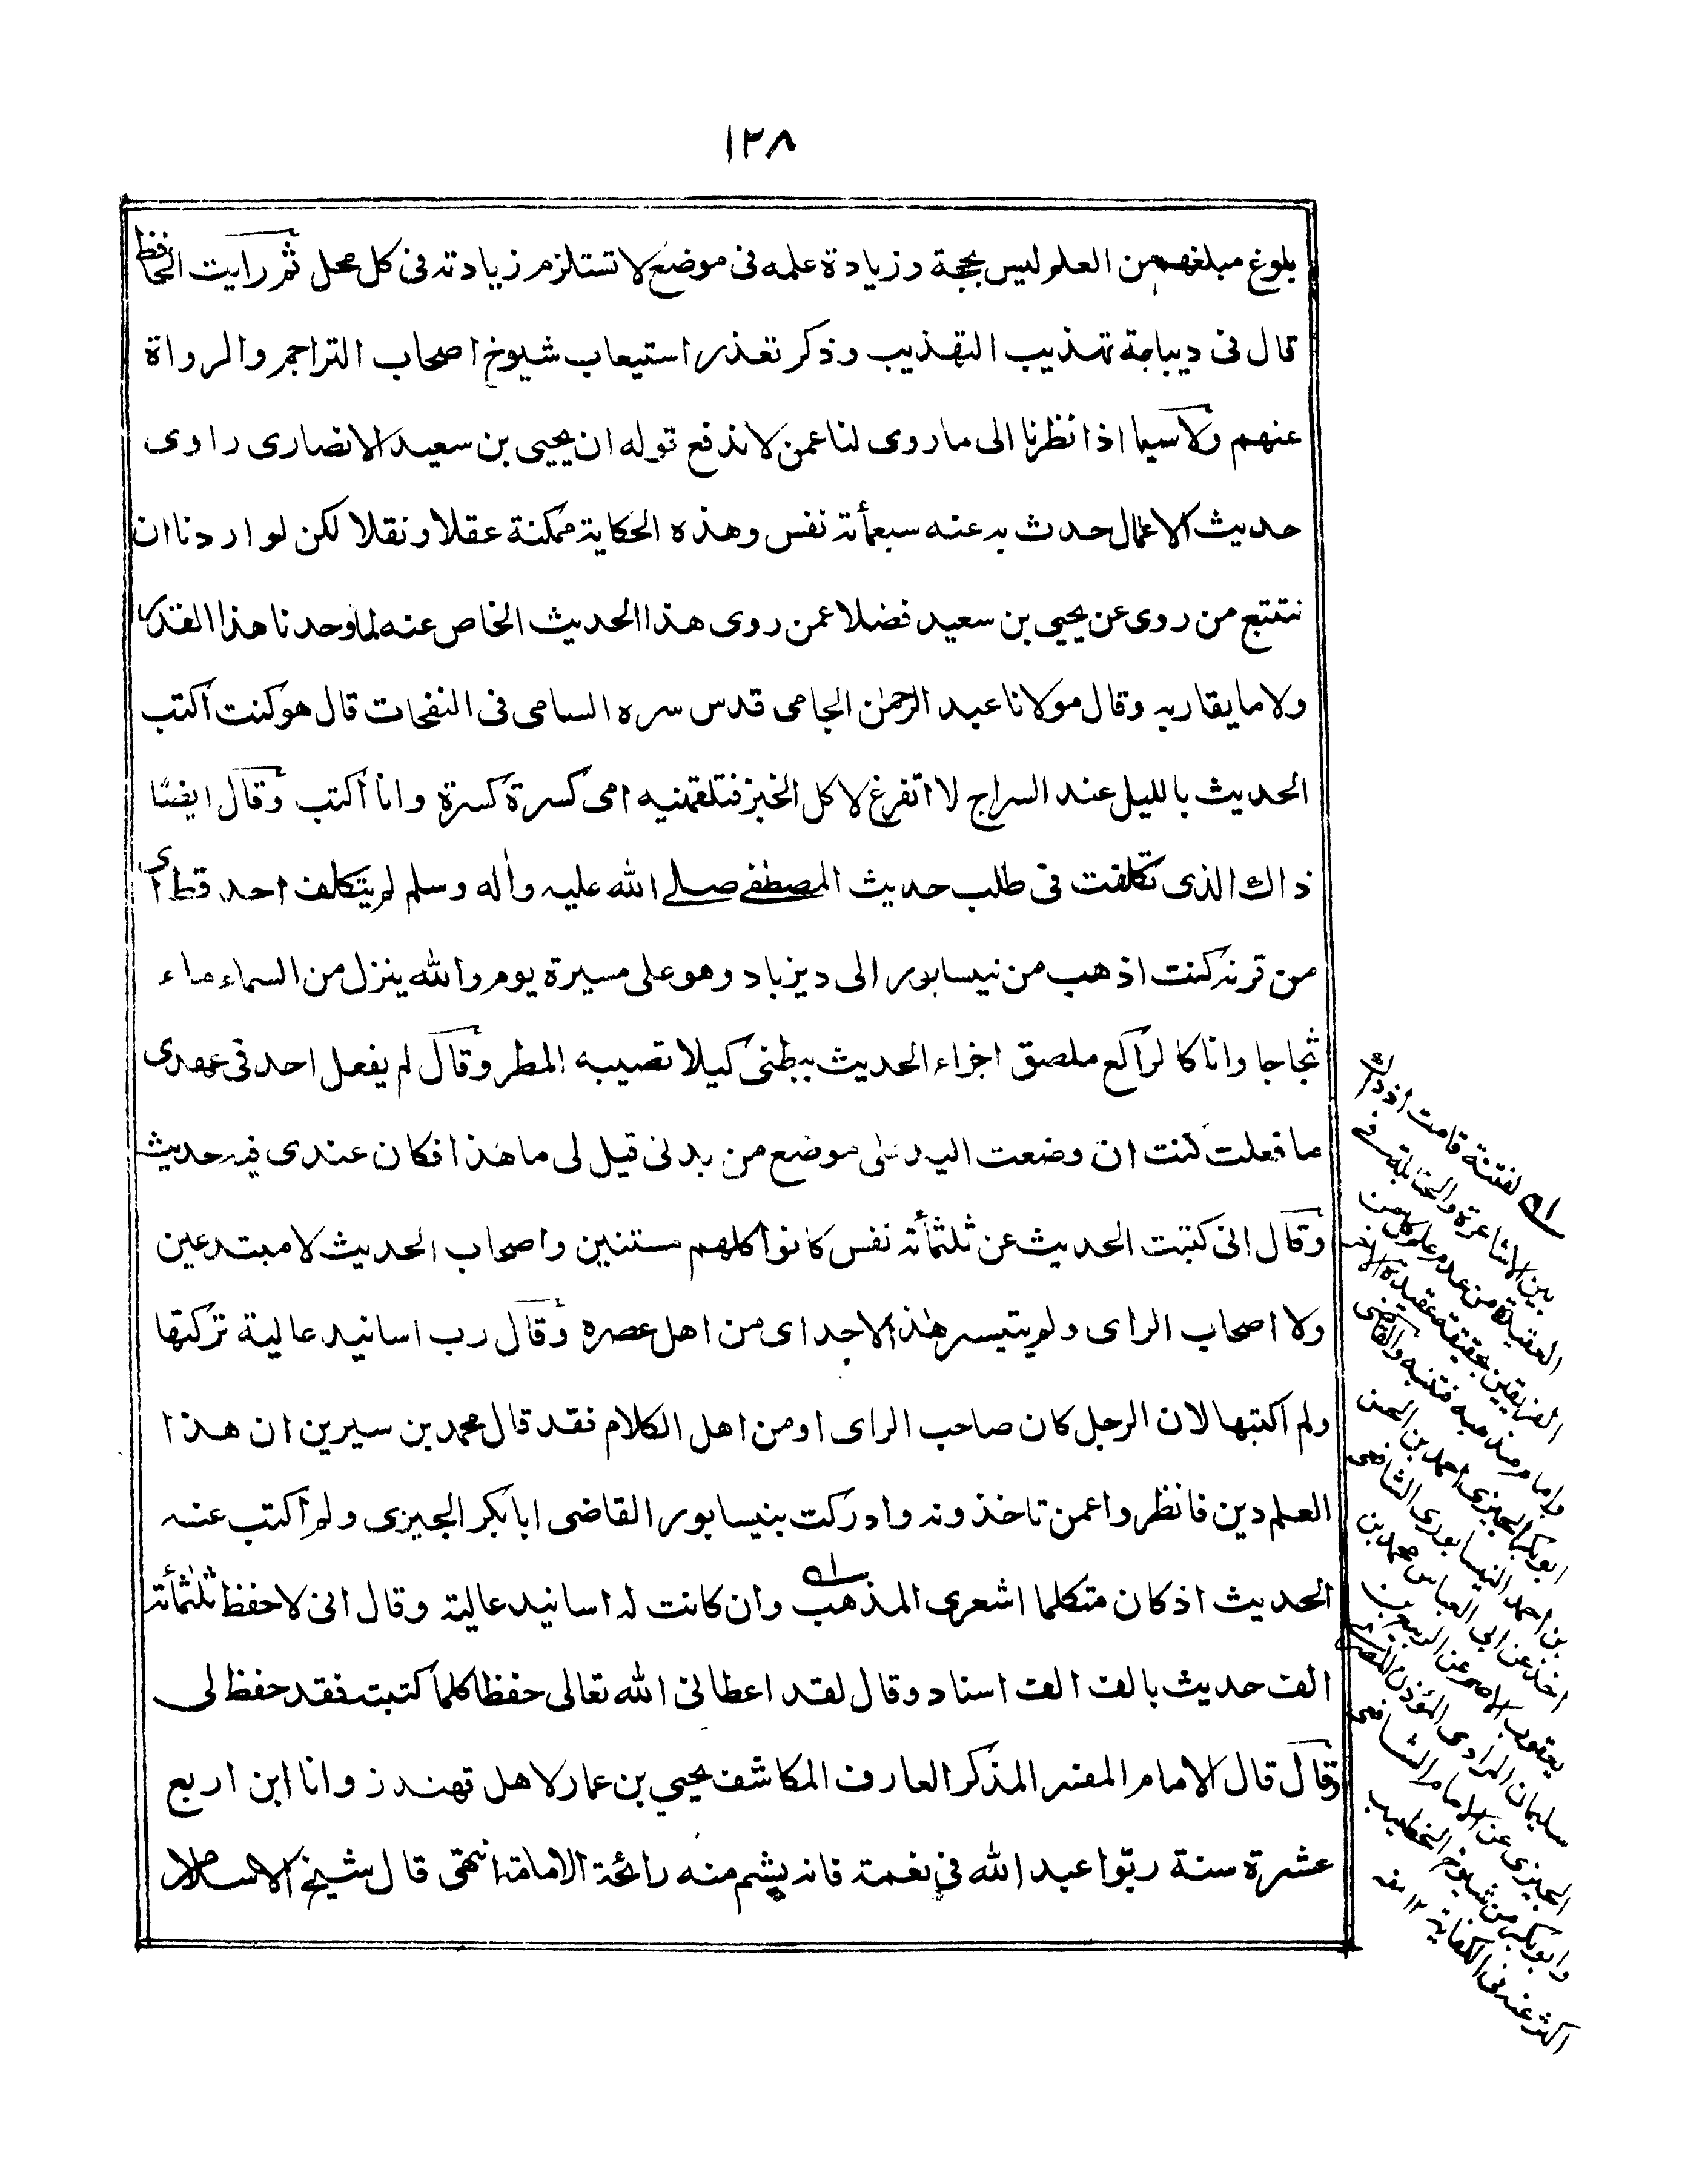 ١٢٨
بلوغ مبلغهم من العلم ليس بحجة وزيادة علمه فى موضع لا تستلزم زيادته فى كل محل ثم رايت الحافظ
قال فى ديباجة تهذيب التهذيب وذكر تعذر استيعاب شيوخ اصحاب التراجم والرواة
عنهم ولاسيما اذا نظرنا الى ما روى لنا عمن لا ندفع قوله ان يحيى بن سعيد الانصارى راوى
حديث الاعمال حدث به عنه سبعمأئة نفس وهذه الحكاية ممكنة عقلا ونقلا لكن لو اردنا ان
نتتبع من روى عن يحيى بن سعيد فضلا عمن روى هذا الحديث الخاص عنه لما وجدنا هذا القدر
ولا ما يقاربه وقال مولانا عبد الرحمٰن الجامى قدس سره السامى فى النفحات قال هو كنت اكتب
الحديث بالليل عند السراج لا اتفرغ لاكل الخبز فتلقمنيه امى كسرة كسرة وانا اكتب وقال ايضًا
ذاك الذى تكلفت فى طلب حديث المصطفے صلے الله عليه واٰله وسلم لم يتكلف احد قط اى
من قرنه كنت اذهب من نيسابور الى ديزباد وهو على مسيرة يوم والله ينزل من السماء ماء
ثجاجا وانا كالراكع ملصق اجزاء الحديث ببطنى كيلا تصيبه المطر وقال لم يفعل احد فى عهدى
ما فعلت كنت ان وضعت اليد على موضع من بدنى قيل لى ما هذا فكان عندى فيه حديث
وقال انى كتبت الحديث عن ثلثمأئة نفس كانوا كلهم مستنين واصحاب الحديث لا مبتدعين
ولا اصحاب الراى ولم يتيسر هٰذا لاحد اى من اهل عصره وقال رب اسانيد عالية تركتها
ولم اكتبها لان الرجل كان صاحب الراى او من اهل الكلام فقد قال محمد بن سيرين ان هذا
العلم دين فانظروا عمن تاخذونه وادركت بنيسابور القاضى ابا بكر الحيرى ولم اكتب عنه
الحديث اذ كان متكلما اشعرى المذهب وان كانت له اسانيد عالية وقال انى لاحفظ ثلثمأئة
الف حديث بالف الف اسناد وقال لقد اعطانى الله تعالى حفظا كلما كتبته فقد حفظ لى
وقال قال الامام المفسر المذكر العارف المكاشف يحيي بن عمار لاهل قهندز وانا ابن اربع
عشرة سنة ربّوا عبد الله فى نعمة فانه يشم منه رائحة الامامة انتهى قال شيخ الاسلام
لفتنة قامت اذ ذاك
بين الاشاعرة والحنابلة فى
العقيدة من عدم علم كل من
الفريقين بحقيقة عقيدة الاخر
وامام مذهبه فتنبه والقاضى
ابو بكر الحيرى احمد بن الحسن
بن احمد النيسابورى الشافعى
اخذ عن ابى العباس محمد بن
يعقوب الاصم عن الربيع بن
سليمان المرادى المؤذن المصرى
الجيزى عن الامام الشافعى
وابو بكر من شيوخ الخطيب
اكثر عنه فى الكفاية ١٢ منه